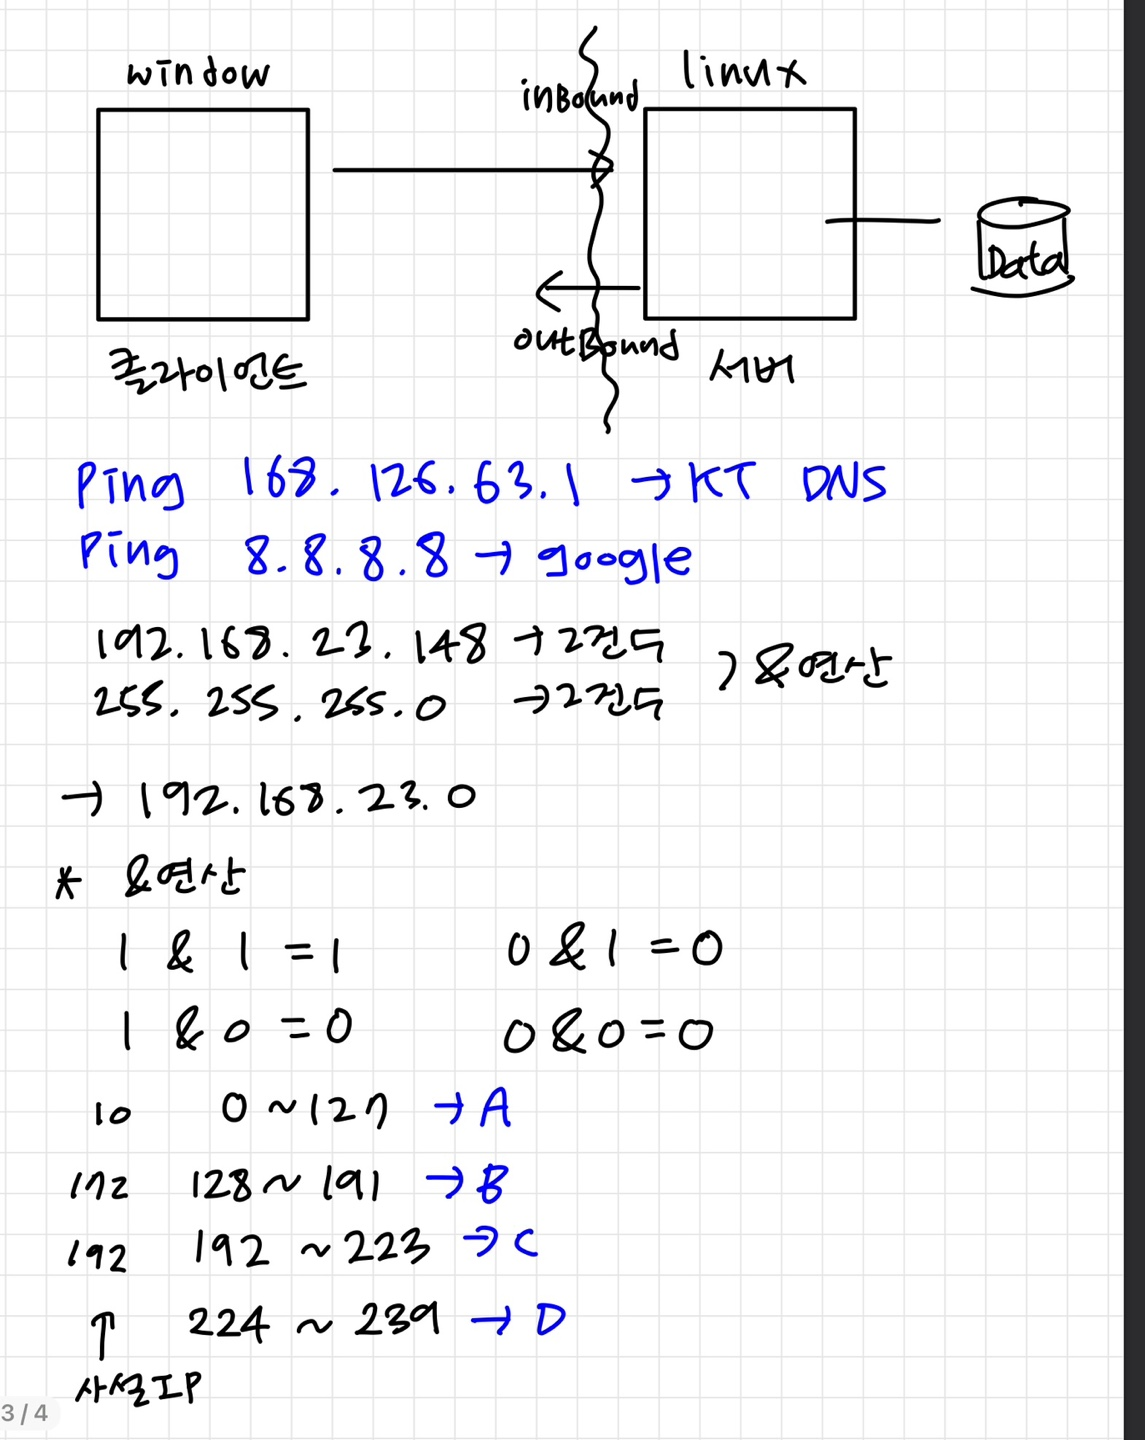 window
inBound
linux
Data
outBound
클라이언트
서버
Ping 168.126.63.1 → KT DNS
Ping 8.8.8.8 → google
192.168.23.148 → 2진두
255.255.255.0 → 2진두
) &연산
→ 192.168.23.0
* &연산
1 & 1 = 1 0 & 1 = 0
1 & 0 = 0 0 & 0 = 0
10 0 ~ 127 → A
172 128 ~ 191 → B
192 192 ~ 223 → C
↑ 224 ~ 239 → D
사설IP
3 / 4